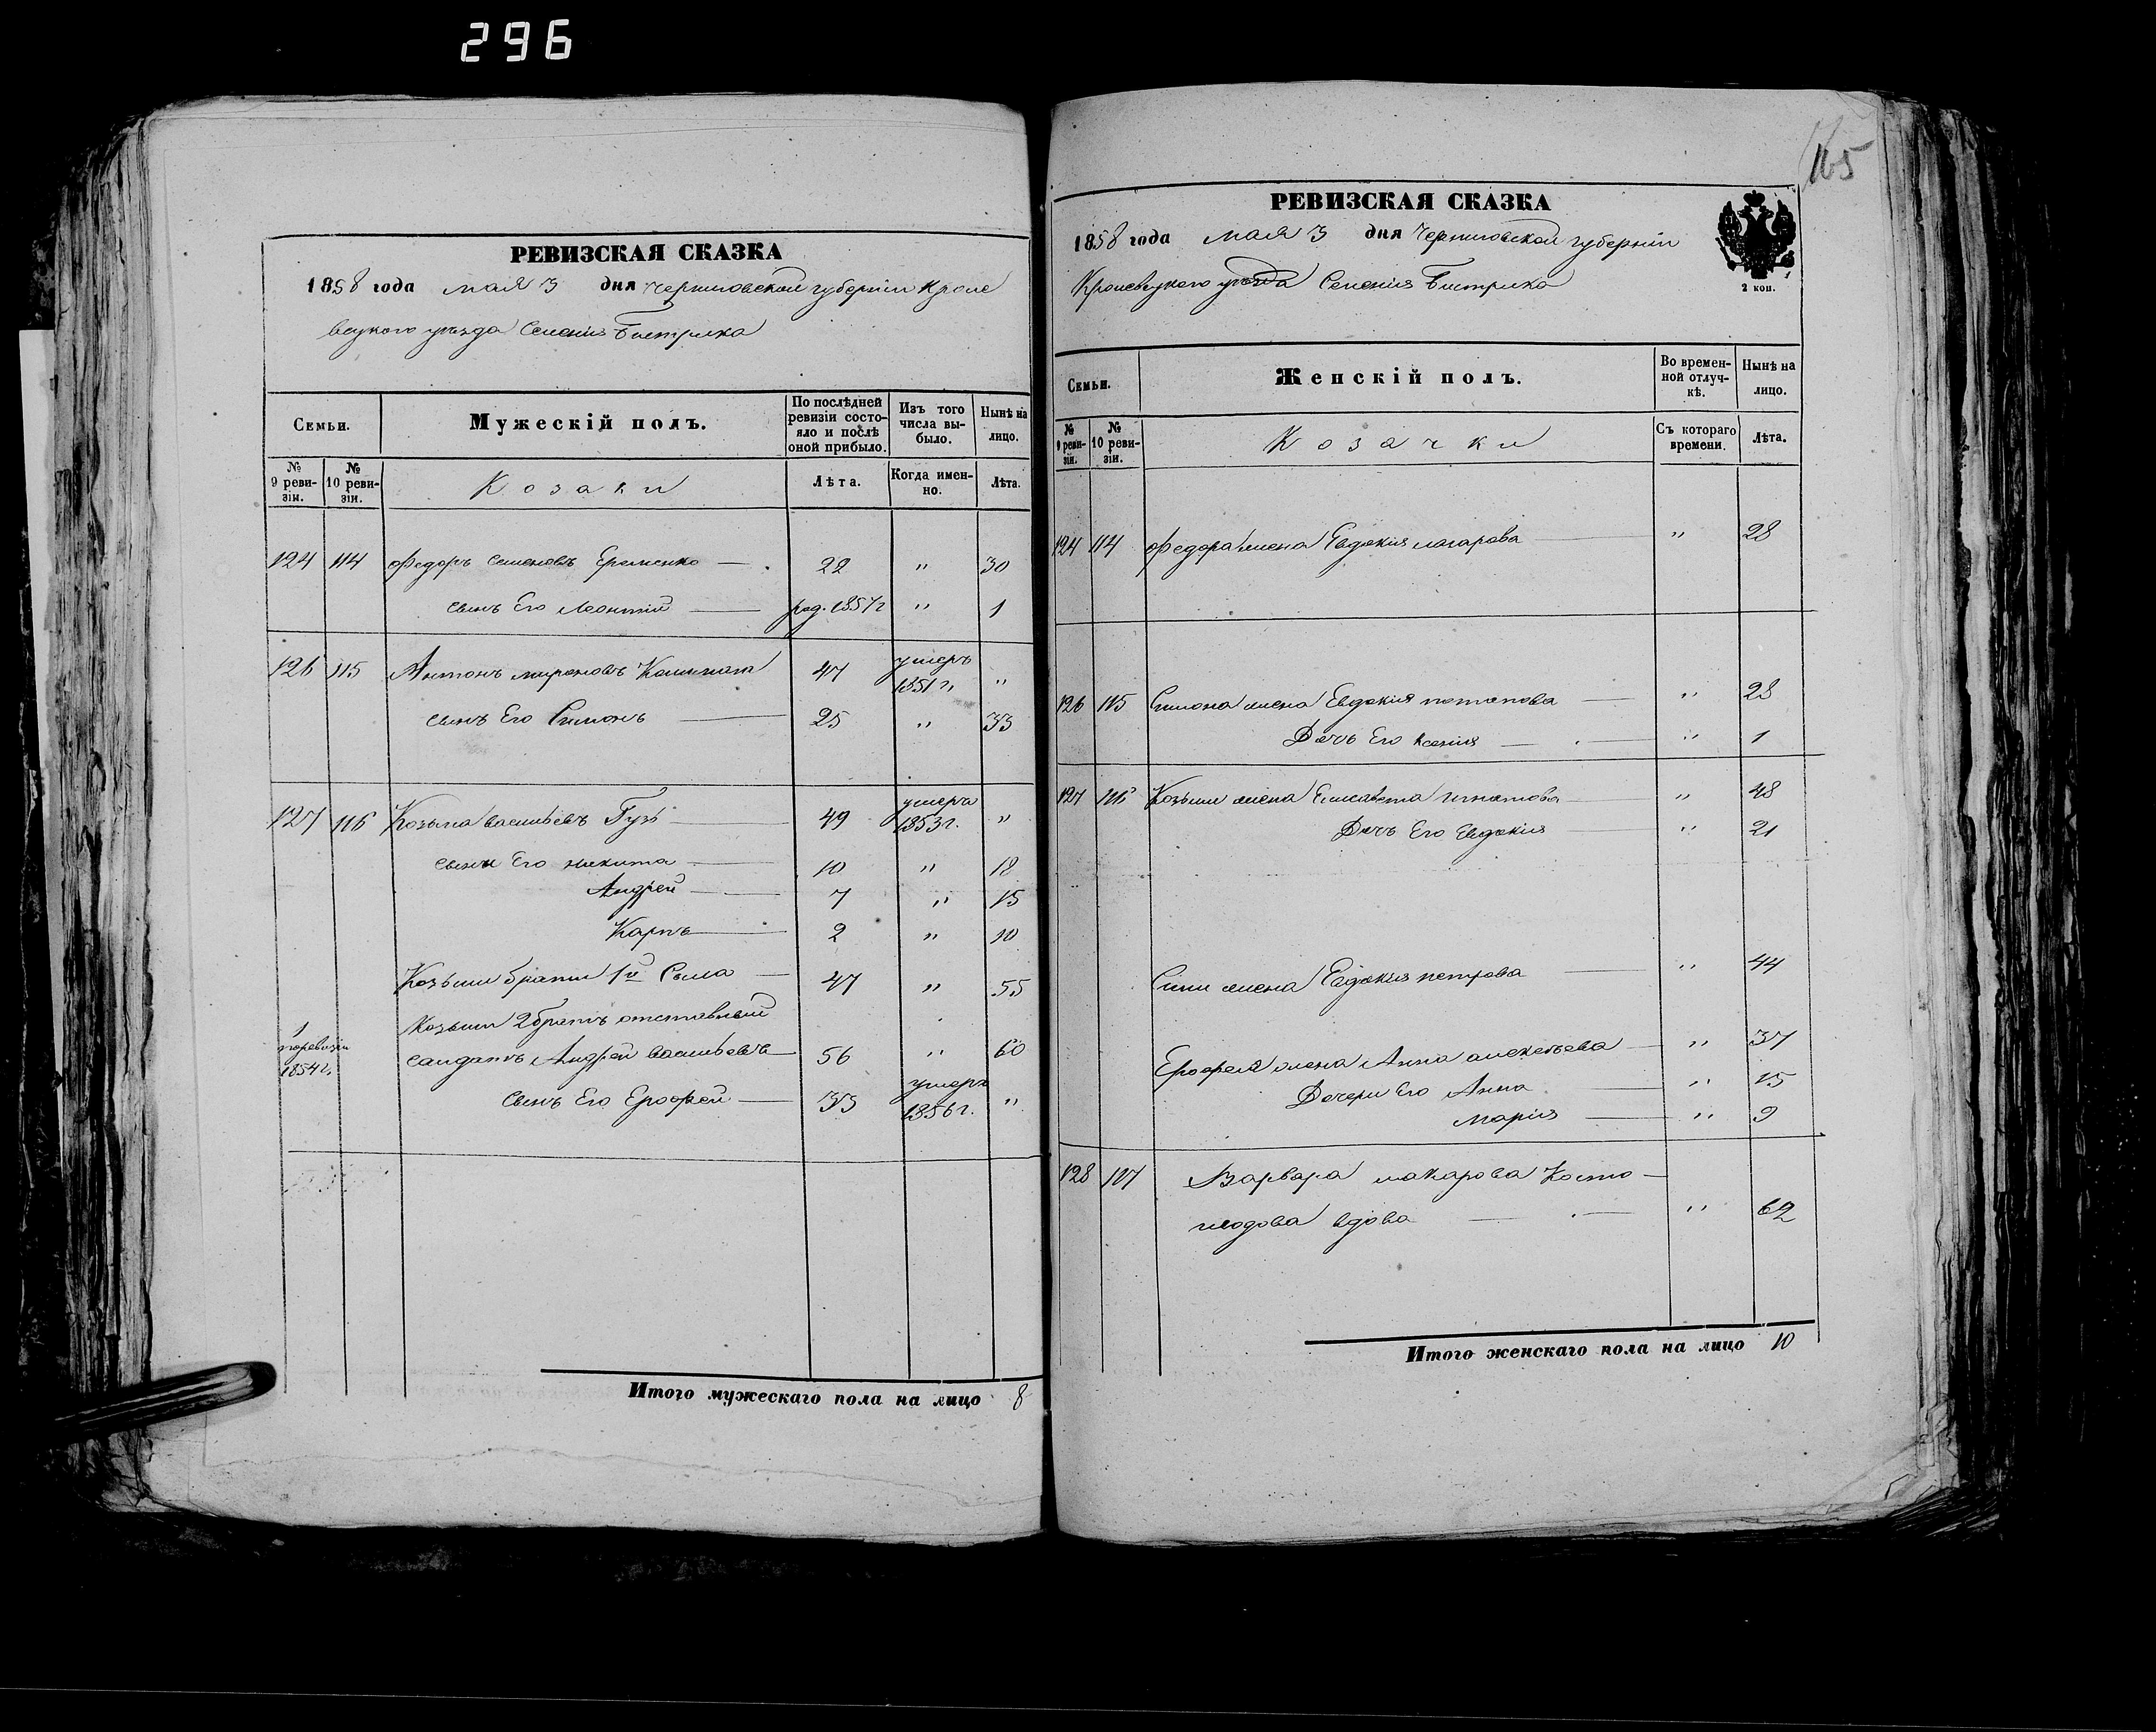 296
165
РЕВИЗСКАЯ СКАЗКА
1858 года мая 3 дня Черниговской губерніи Кроле
вецкого уезда Селенія Бистрика
Семьи.
Мужескій полъ.
По послѣдней ревизіи состояло и послѣ оной прибыло.
Изъ того числа выбыло.
Нынѣ на лицо.
№ 9 ревизіи.
№ 10 ревизіи.
Козаки
Лѣта.
Когда именно.
Лѣта.
124 114 Федоръ Семеновъ Еременко — 22 " 30
сынъ Его Леонтій — род. 1857 г " 1
126 115 Антонъ Мироновъ 47 умеръ 1851 г. "
сынъ Его Симонъ — 25 " 33
127 116 Козьма Васильевъ Гузь — 49 умеръ 1853 г. "
сыны Его Никита — 10 " 18
Андрей — 7 " 15
Карпъ — 2 " 10
Козьмы братъ 1й Сыла — 47 " 55
Козьмы 2 братъ отставный
по ревизіи 1854 г. салдатъ Андрей Васильевъ — 56 " 60
сынъ Его Ерофей — 33 умеръ 1856 г. "
Итого мужескаго пола на лицо 8
РЕВИЗСКАЯ СКАЗКА
1858 года мая 3 дня Черниговской губерніи
Кролевецкого уезда Селенія Бистрика
2 коп.
Семьи.
Женскій полъ.
Во временной отлучкѣ.
Нынѣ на лицо.
№ 9 ревизіи.
№ 10 ревизіи.
Козачки
Съ котораго времени.
Лѣта.
124 114 Федора жена Евдокия — " 28
126 115 Симона жена Евдокия Потапова — " 28
Дочь Его Ксения — " 1
127 116 Козьмы жена Елисавета Игнатова — " 48
Дочь Его Евдокия — " 21
Сылы жена Евдокия Петрова — " 44
Ерофея жена Анна Алексеева — " 37
Дочери Его Анна — " 15
Мария — " 9
128 117 Варвара Макарова Косто-
вдова — " 62
Итого женскаго пола на лицо 10